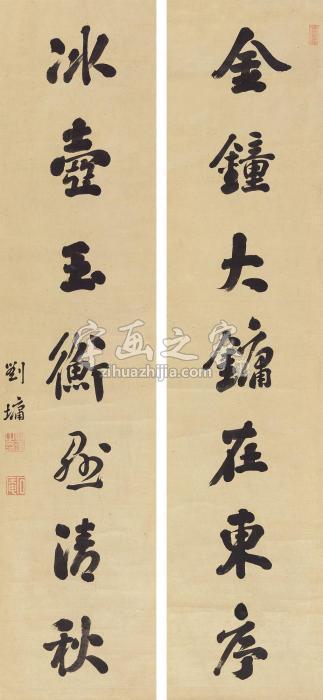 金鐘大鏞在東序
冰壺玉衡懸清秋
劉墉
字画之家
zihuazhijia.com